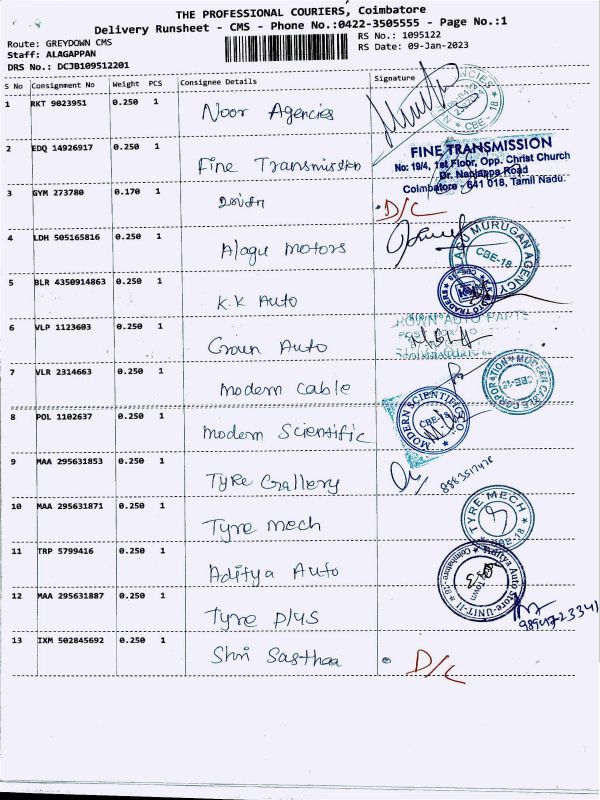 THE PROFESSIONAL COURIERS, Coimbatore
Delivery Runsheet - CMS - Phone No.:0422-3505555 - Page No.:1
Route: GREYDOWN CMS
RS No.: 1095122
Staff: ALAGAPPAN
RS Date: 09-Jan-2023
DRS No.: DCJB109512201
S No Consignment No Weight PCS Consignee Details Signature
1 RKT 9023951 0.250 1 Noor Agencies
CBE - 18
2 EDQ 14926917 0.250 1 Fine Transmission
FINE TRANSMISSION
No: 19/4, 1st Floor, Opp. Christ Church
Dr. Nanjappa Road
Coimbatore - 641 018, Tamil Nadu.
3 GYM 273780 0.170 1 D/C
4 LDH 505165816 0.250 1 Alagu motors
ALAGU MURUGAN AGENCY
CBE-18
5 BLR 4350914863 0.250 1 K.K Auto
6 VLP 1123603 0.250 1 Crown Auto
7 VLR 2314663 0.250 1 modern cable
MODERN CABLE CORPORATION
CBE-18
8 POL 1102637 0.250 1 modern Scientific
MODERN SCIENTIFIC CO.
CBE-18
9 MAA 295631853 0.250 1 Tyre Gallery
10 MAA 295631871 0.250 1 Tyre mech
TYRE MECH
CBE-18
11 TRP 5799416 0.250 1 Aditya Auto
Aditya Auto Store-UNIT-II
Coimbatore
12 MAA 295631887 0.250 1 Tyre plus
13 IXM 502845692 0.250 1 Shri Sasthaa D/C